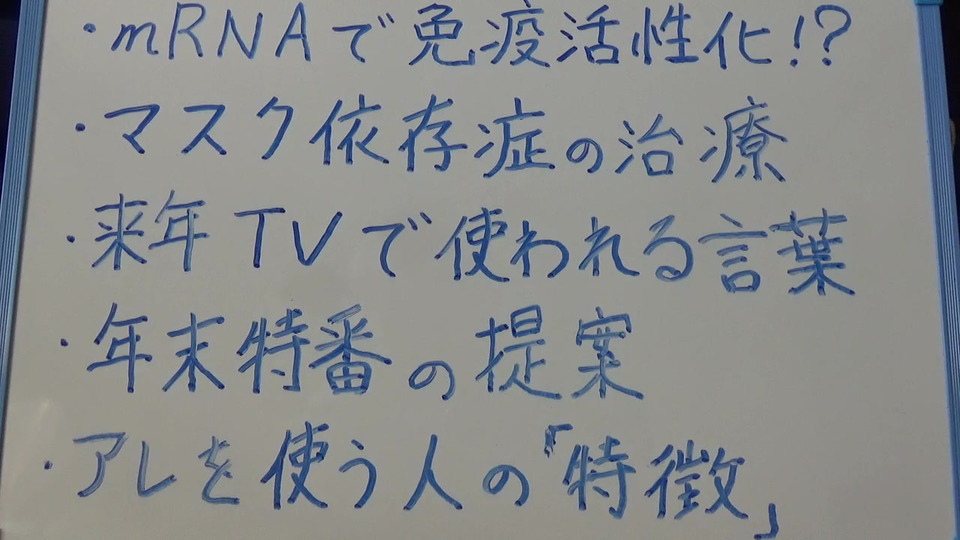 ・mRNAで免疫活性化!?
・マスク依存症の治療
・来年TVで使われる言葉
・年末特番の提案
・アレを使う人の「特徴」